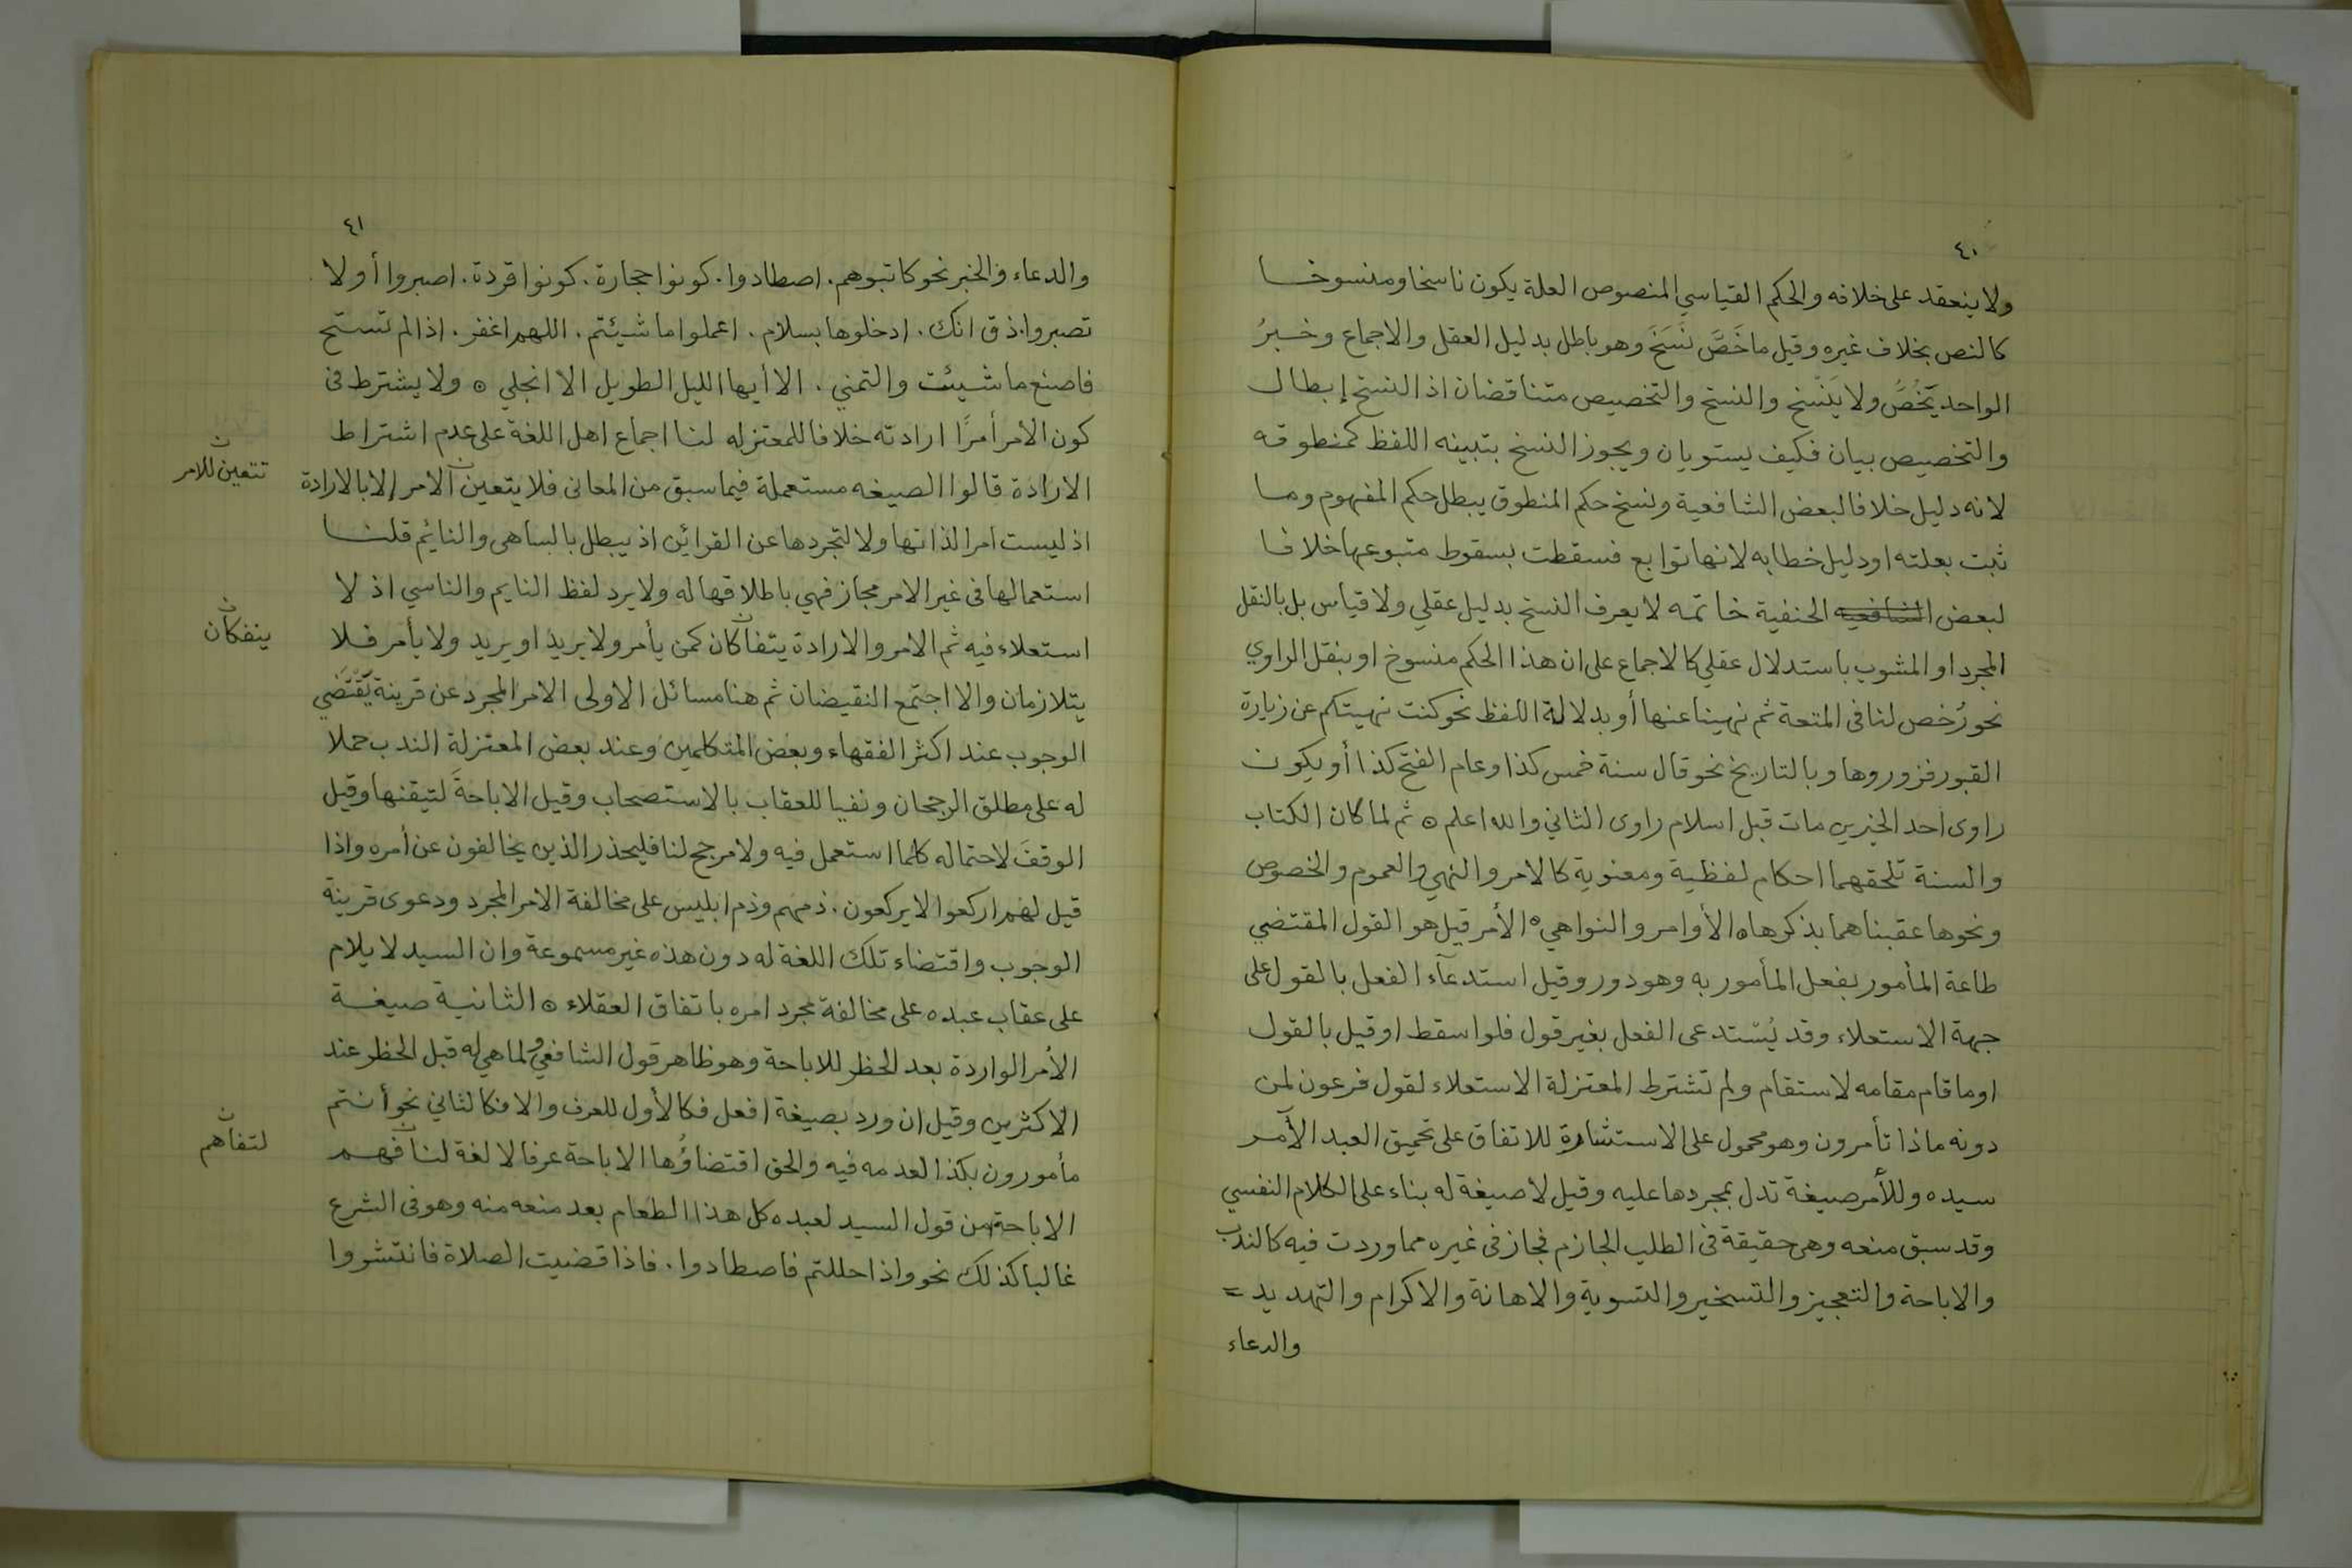 ٤٠
ولا ينعقد على خلافه والحكم القياسي المنصوص العلة يكون ناسخا ومنسوخا
كالنص بخلاف غيره وقيل ما خَصَّ نَسَخَ وهو باطل بدليل العقل والاجماع وخبرُ
الواحد يَخُصُّ ولا يَنْسَخ والنسخ والتخصيص متناقضان اذ النسخ إبطال
والتخصيص بيان فكيف يستويان ويجوز النسخ بتبينه اللفظ كمنطوقه
لانه دليل خلافا لبعض الشافعية ونسخ حكم المنطوق يبطل حكم المفهوم وما
ثبت بعلته او دليل خطابه لانها توابع فسقطت بسقوط متبوعها خلافا
لبعض الشافعيه الحنفية خاتمه لا يعرف النسخ بدليل عقلي ولا قياس بل بالنقل
المجرد او المشوب باستدلال عقلي كالاجماع على ان هذا الحكم منسوخ او بنقل الراوي
نحو رُخص لنا في المتعة ثم نهينا عنها أو بدلالة اللفظ نحو كنت نهيتكم عن زيارة
القبور فزوروها وبالتاريخ نحو قال سنة خمس كذا وعام الفتح كذا أو يكون
راوى احد الخبرين مات قبل اسلام راوى الثاني والله اعلم ⊙ ثم لما كان الكتاب
والسنة تلحقهما احكام لفظية ومعنوية كالامر والنهي والعموم والخصوص
ونحوها عقبناهما بذكرها ⊙ الأوامر والنواهي ⊙ الأمر قيل هو القول المقتضي
طاعة المأمور بفعل المأمور به وهو دور وقيل استدعآء الفعل بالقول على
جهة الاستعلاء وقد يُستدعى الفعل بغير قول فلو اسقط او قيل بالقول
او ما قام مقامه لاستقام ولم تشترط المعتزلة الاستعلاء لقول فرعون لمن
دونه ماذا تأمرون وهو محمول على الاستشارة للاتفاق على تحميق العبد الآمر
سيده وللأمر صيغة تدل بمجردها عليه وقيل لا صيغة له بناء على الكلام النفسي
وقد سبق منعه وهى حقيقة في الطلب الجازم مجاز في غيره مما وردت فيه كالندب
والاباحة والتعجيز والتسخير والتسوية والاهانة والاكرام والتهديد =
والدعاء
٤١
والدعاء والخبر نحو كاتبوهم. اصطادوا. كونوا حجارة. كونوا قردة. اصبروا أو لا
تصبروا. ذق انك. ادخلوها بسلام. اعملوا ما شيئتم. اللهم اغفر. اذا لم تستح
فاصنع ما شيئت والتمني. الا أيها الليل الطويل الا انجلي ⊙ ولا يشترط في
كون الأمر أمرًا ارادته خلافا للمعتزله لنا اجماع اهل اللغة على عدم اشتراط
الارادة قالوا الصيغه مستعملة فيما سبق من المعانى فلا يتعين الامر الا بالارادة
تتعين للامر ن
اذ ليست امرا لذاتها ولا لتجردها عن القرائن اذ يبطل بالساهى والنائم قلنا
استعمالها في غير الامر مجاز فهي باطلاقها له ولا يرد لفظ النايم والناسي اذ لا
استعلاء فيه ثم الامر والارادة يتفاكان كمن يأمر ولا يريد او يريد ولا يأمر فلا
ينفكان ن
يتلازمان والا اجتمع النقيضان ثم هنا مسائل الاولى الامر المجرد عن قرينة يَقْتَضي
الوجوب عند اكثر الفقهاء وبعض المتكلمين وعند بعض المعتزلة الندب حملا
له على مطلق الرجحان ونفيا للعقاب بالاستصحاب وقيل الاباحةَ لتيقنها وقيل
الوقفَ لاحتماله كلما استعمل فيه ولا مرجح لنا فليحذر الذين يخالفون عن أمره واذا
قيل لهم اركعوا لا يركعون. ذمهم وذم ابليس على مخالفة الامر المجرد ودعوى قرينة
الوجوب واقتضاء تلك اللغة له دون هذه غير مسموعة وان السيد لا يلام
على عقاب عبده على مخالفة مجرد امره باتفاق العقلاء ⊙ الثانية صيغة
الأمر الواردة بعد الحظر للاباحة وهو ظاهر قول الشافعي ولما هي له قبل الحظر عند
الاكثرين وقيل ان ورد بصيغة افعل فكالأول للعرف والا فكالثاني نحو أنتم
مأمورون بكذا لعدمه فيه والحق اقتضاؤُها الاباحة عرفا لا لغة لنا فهم
لتفاهم ن
الاباحة من قول السيد لعبده كل هذا الطعام بعد منعه منه وهو في الشرع
غالبا كذلك نحو واذا حللتم فاصطادوا. فاذا قضيت الصلاة فانتشروا